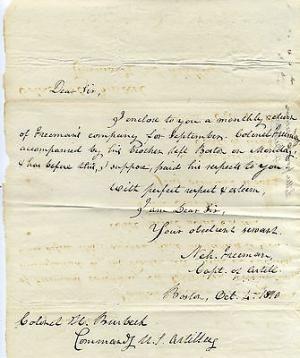 Dear Sir,
I enclose to you a monthly return
of Freeman's company for September. Colonel Freeman
accompanied by his left Boston on Monday,
& has before this, I suppose, paid his respects to you
With perfect respect & esteem,
I am Dear Sir,
Your obedient servant.
Neh. Freeman,
Capt. of Artill.
Boston, Oct. 4.
Colonel H. Burbeck
Commandg U.S. Artillery